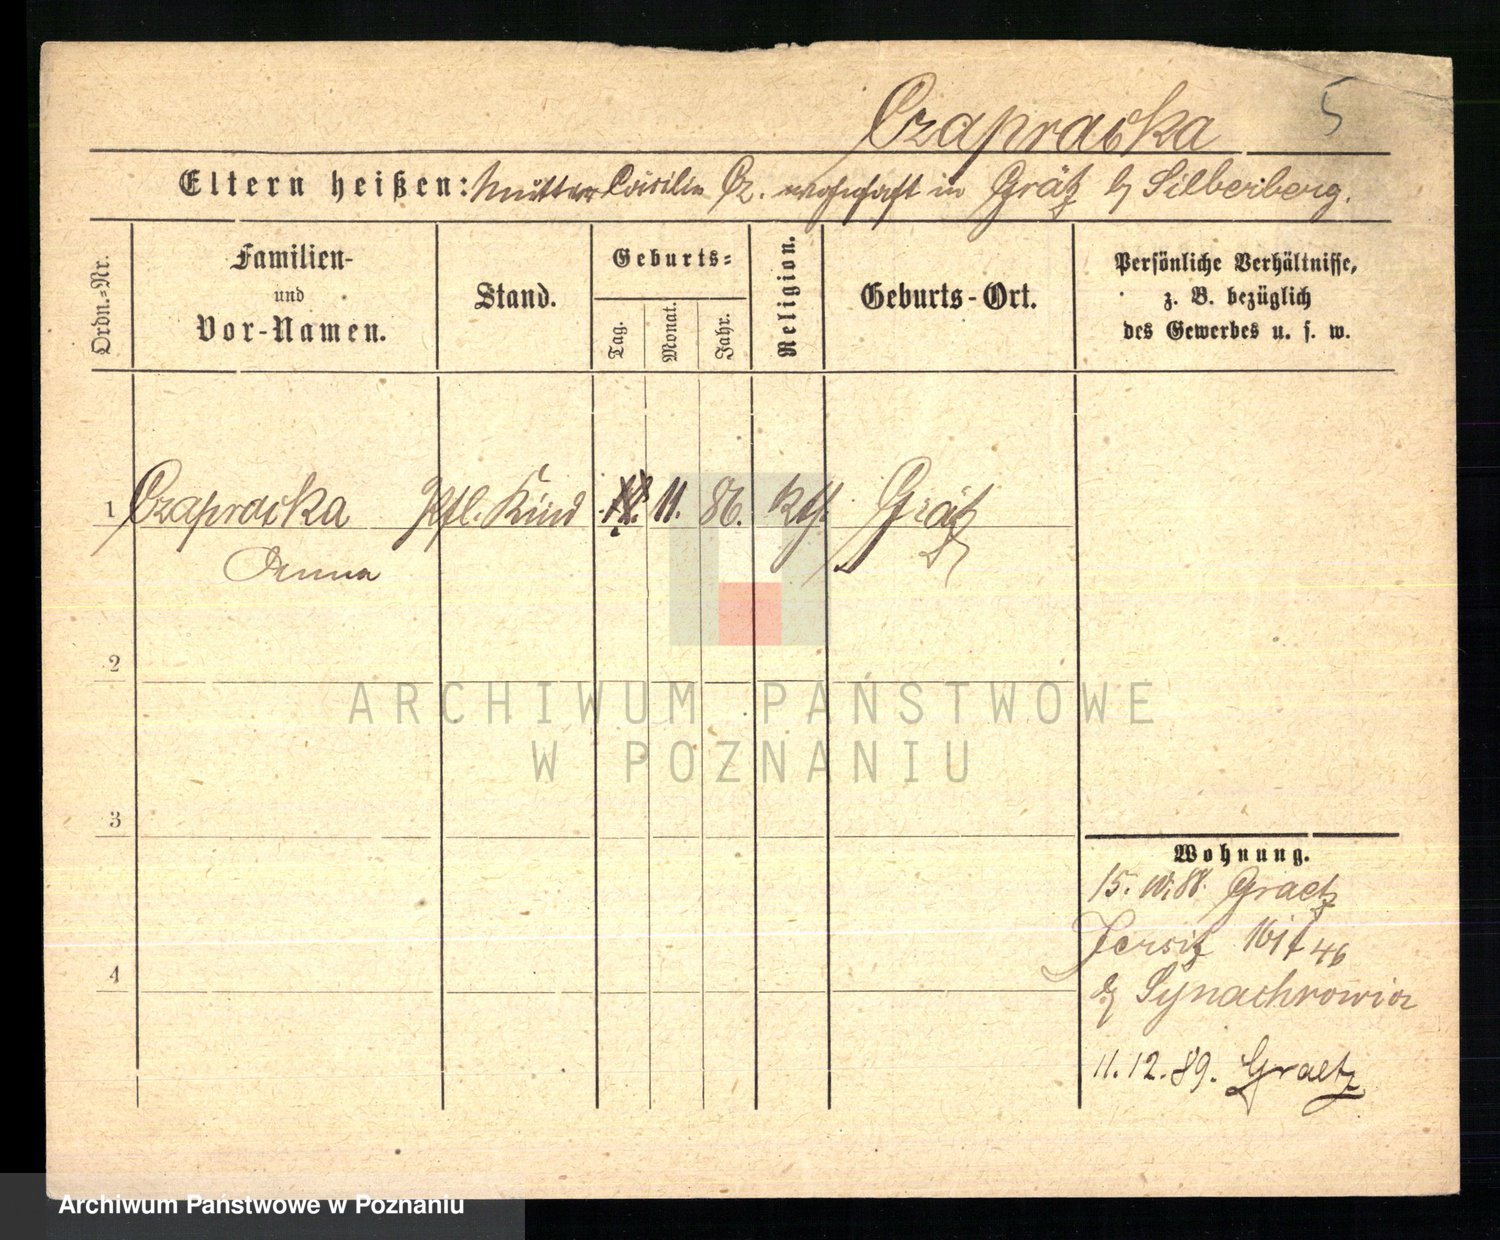 5
Czapracka
Eltern heißen: Mutter Cäcilie Cz. wohnhaft in Grätz b/ Silberberg.
Ordn.-Nr.
Familien- und Vor-Namen.
Stand.
Geburts-
Tag.
Monat.
Jahr.
Religion.
Geburts-Ort.
Persönliche Verhältnisse,
z. B. bezüglich
des Gewerbes u. s. w.
1 Czapracka Pfl. Kind 11. 86. Kth. Grätz
Anna
2
3
4
Wohnung.
15. 10. 88. Graetz
Jersitz 161 f 46
b/ Synachrowicz
11. 12. 89. Graetz
ARCHIWUM PAŃSTWOWE
W POZNANIU
Archiwum Państwowe w Poznaniu